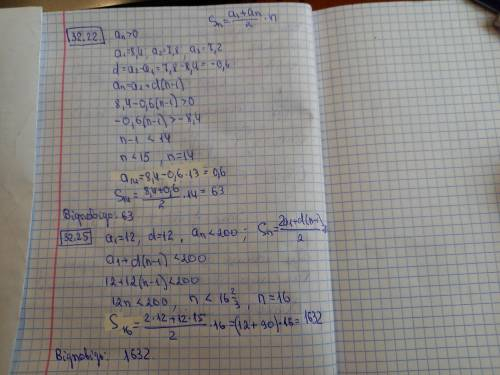 Sn = (a₁ + an)/2 · n
32.22. an > 0
a₁ = 8,4 a₂ = 7,8, a₃ = 7,2
d = a₂ - a₁ = 7,8 - 8,4 = -0,6
an = a₁ + d(n-1)
8,4 - 0,6(n-1) > 0
-0,6(n-1) > -8,4
n-1 < 14
n < 15, n = 14
a₁₄ = 8,4 - 0,6 · 13 = 0,6
S₁₄ = (8,4 + 0,6)/2 · 14 = 63
Відповідь: 63
32.25 a₁ = 12, d = 12, an < 200; Sn = (2a₁ + d(n-1))/2
a₁ + d(n-1) < 200
12 + 12(n-1) < 200
12n < 200, n < 16 2/3, n = 16
S₁₆ = (2 · 12 + 12 · 15)/2 · 16 = (12 + 90) · 16 = 1632
Відповідь: 1632